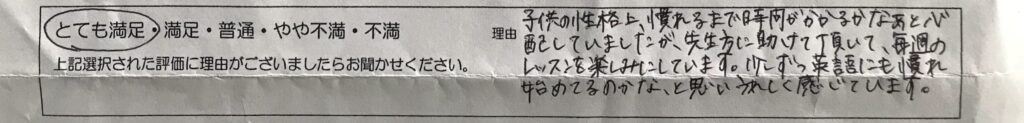 とても満足・満足・普通・やや不満・不満
上記選択された評価に理由がございましたらお聞かせください。
理由
子供の性格上、慣れるまで時間がかかるかなぁと心
配していましたが、先生方に助けて頂いて、毎週の
レッスンを楽しみにしています。少しずつ英語にも慣れ
始めてるのかな、と思いうれしく感じています。